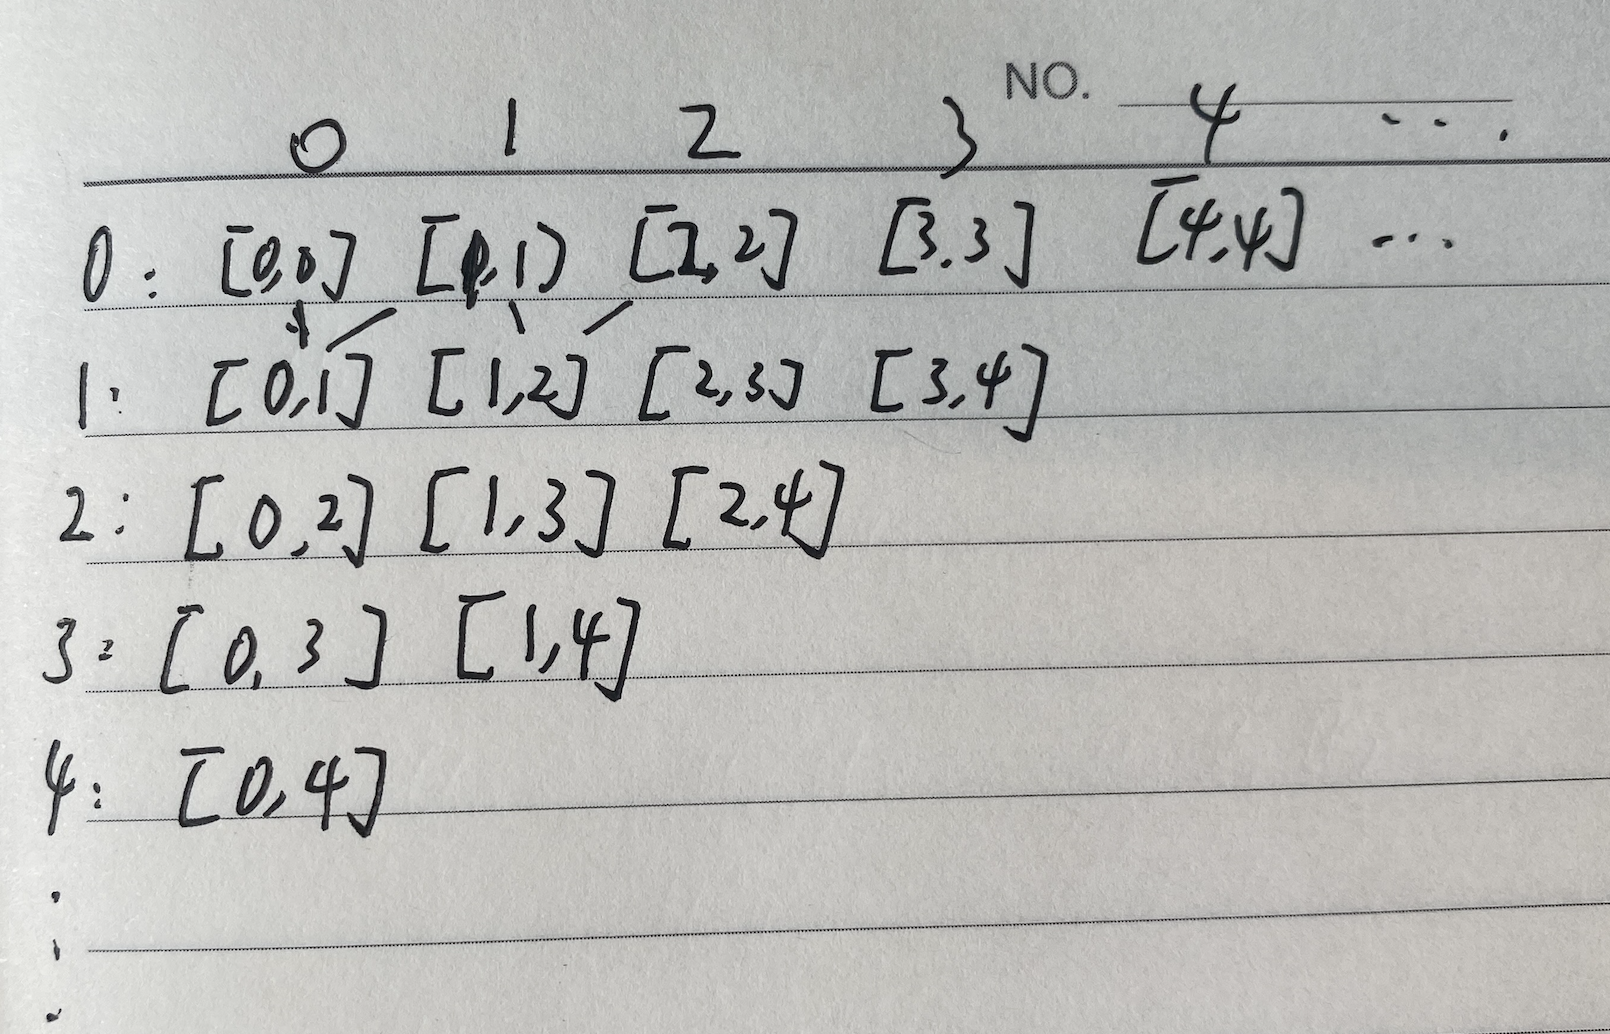 NO.
0 1 2 3 4 ...
0: [0,0] [1,1] [2,2] [3.3] [4,4] ...
1: [0,1] [1,2] [2,3] [3,4]
2: [0,2] [1,3] [2,4]
3: [0,3] [1,4]
4: [0,4]